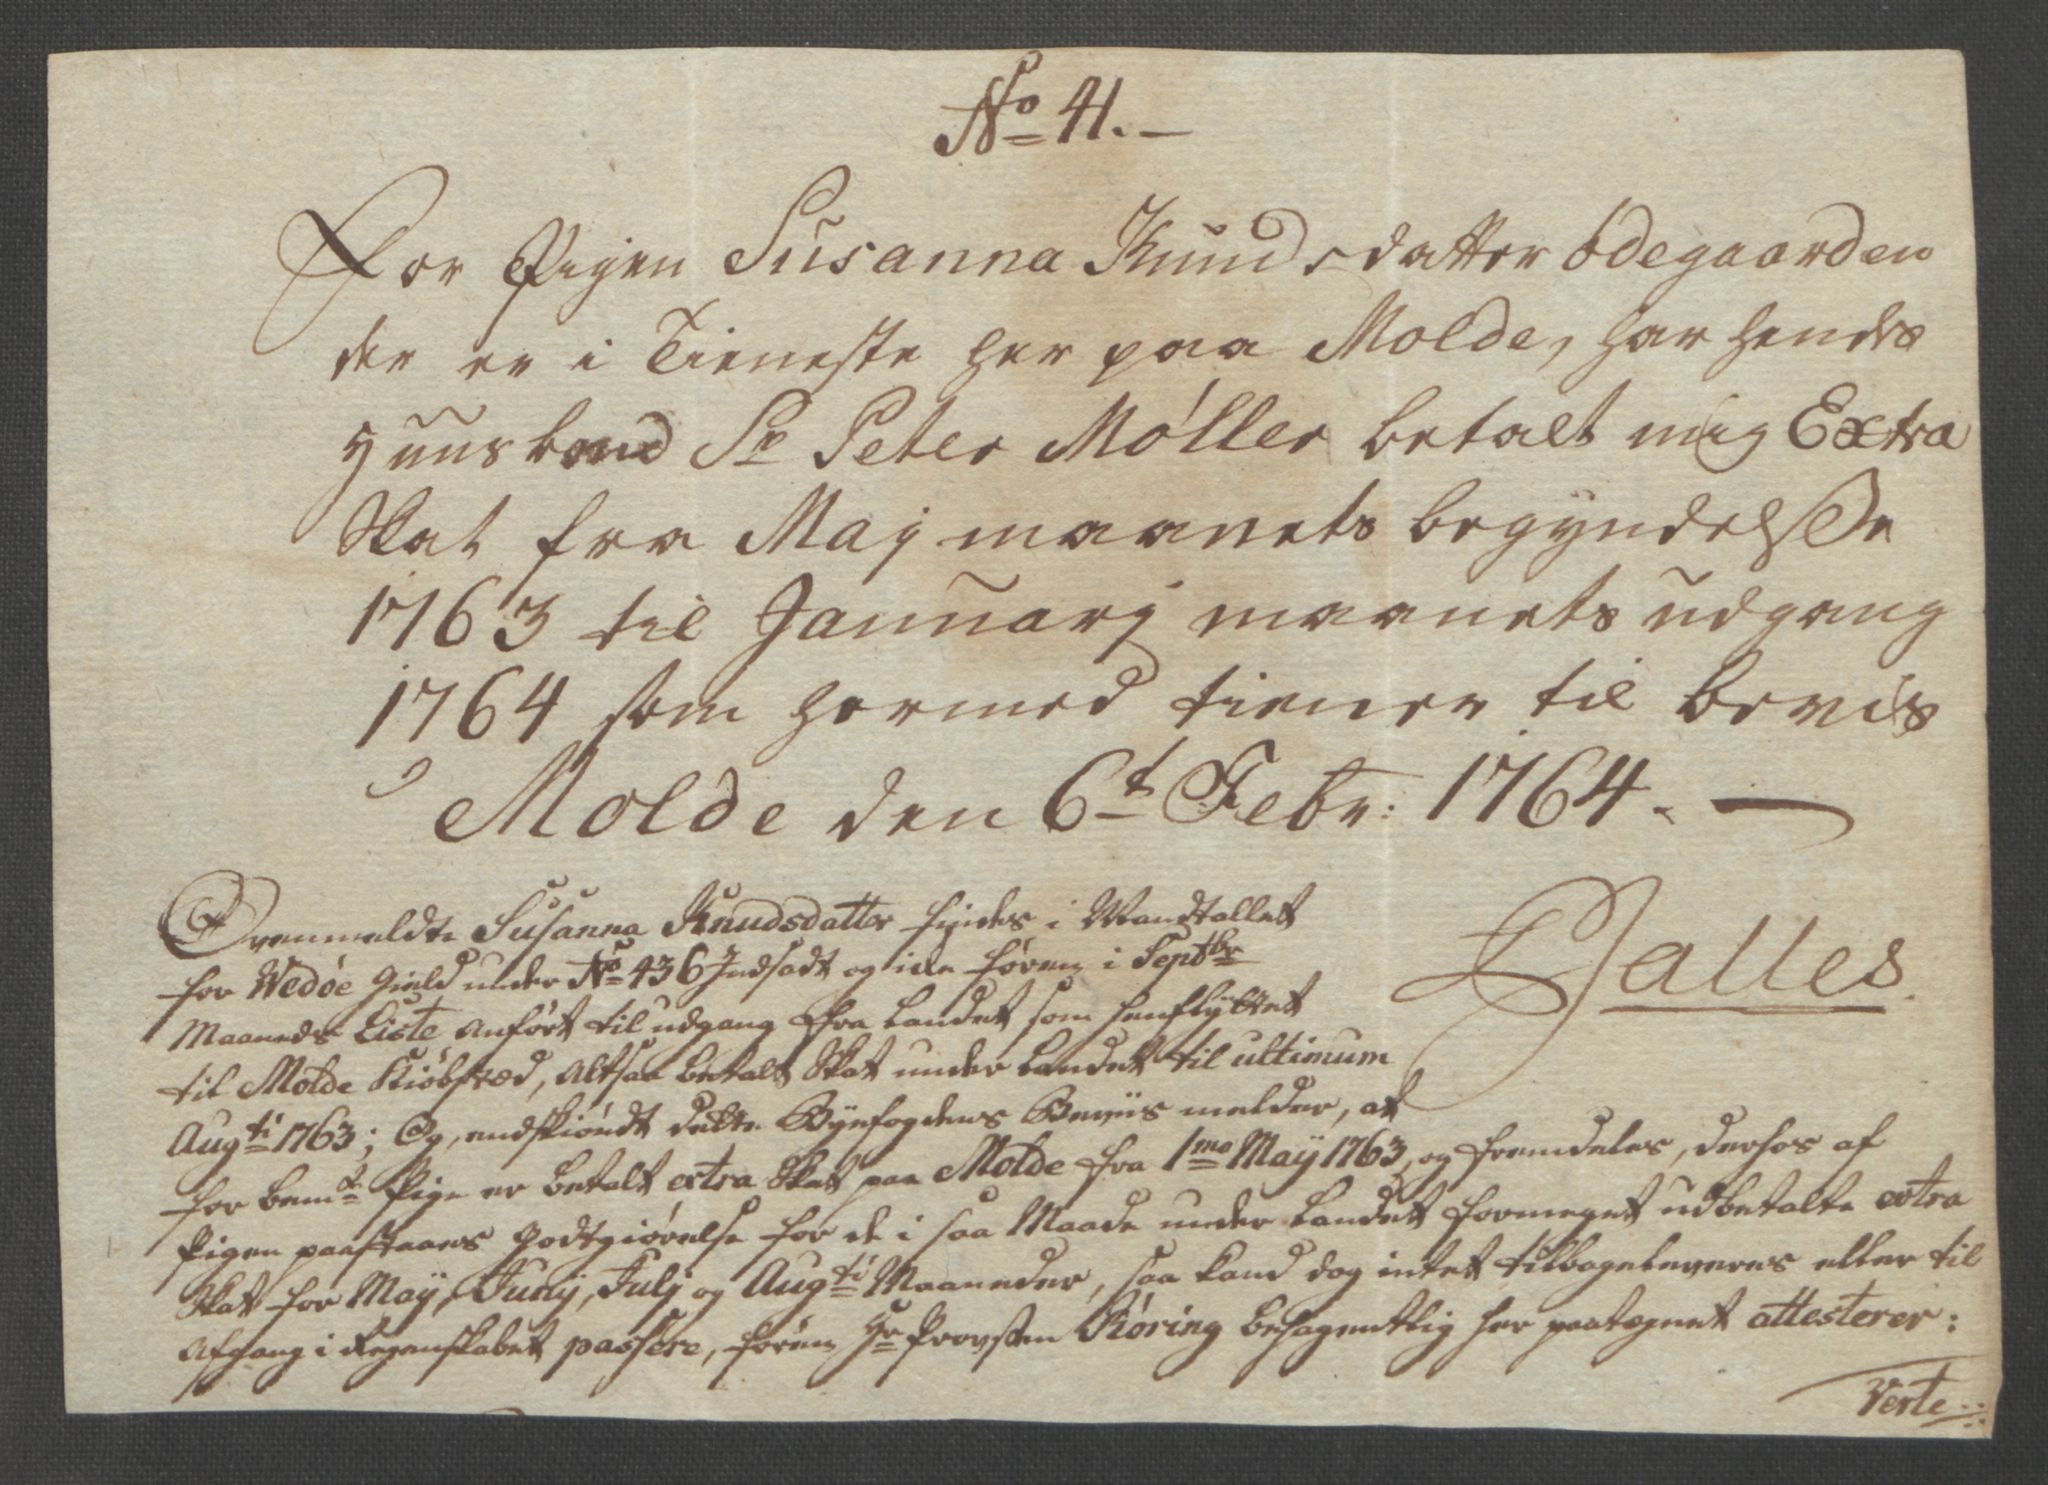 No 41. —
For Pigen Susanna Knudsdatter Ödegaarden
der er i Tieneste her paa Molde, har hendes
Huusbond Sr Peter Møller betalt mig Extra
Skat fra Maj maanets begyndelsse
1763 til Januarj maanets udgang
1764 som hermed tiener til bevis
Molde den 6t Febr: 1764. —
Dalles.
Ovenmeldte Susanna Knudsdatter findes i Mandtallet
for Wedöe Gield under No 436 Indsadt og icke førend i Septbr
Maaneds Liste anført til udgang fra Landet som henflÿttet
til Molde Kiøbsted, altsaa betalt Skat under Landet til ultimum
Augti 1763; Og, endskiøndt dette Bÿefogdens Beviis melder, at
for bemte Pige er betalt extra Skat paa Molde fra 1mo Maÿ 1763, og fremdeles, derhos af
Pigen paastaaes Godtgiørelse for de i saa Maade under Landet formeget udbetalte extra
Skat for Maÿ, Junij, Julj og Augti Maaneder, saa kand dog intet tilbageleveres eller til
Afgang i Regenskabet passere, førend Hr Provsten Røring behagentlig her paategnet attesterer:
Verte